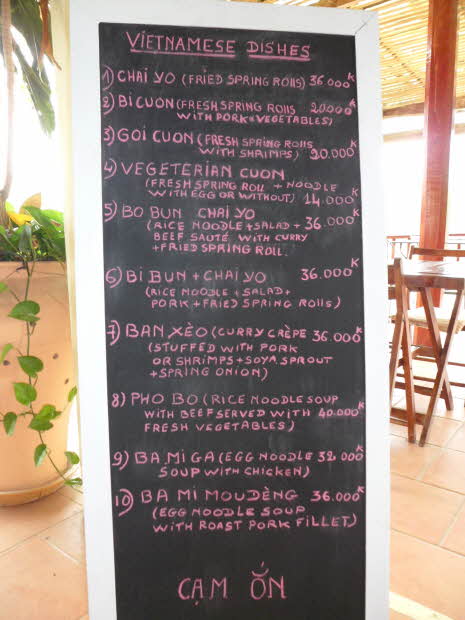 VIETNAMESE DISHES
1) CHAI YO (FRIED SPRING ROLLS) 36.000K
2) BI CUON (FRESH SPRING ROLLS 20000K
WITH PORK + VEGETABLES)
3) GOI CUON (FRESH SPRING ROLLS
WITH SHRIMPS) 20.000K
4) VEGETERIAN CUON
(FRESH SPRING ROLL + NOODLE
WITH EGG OR WITHOUT) 14.000K
5) BO BUN CHAI YO
(RICE NOODLE + SALAD + 36.000K
BEEF SAUTÉ WITH CURRY
+ FRIED SPRING ROLL.
6) BI BUN + CHAI YO 36.000K
(RICE NOODLE + SALAD +
PORK + FRIED SPRING ROLLS)
7) BAN XÈO (CURRY CRÈPE 36.000K
(STUFFED WITH PORK
OR SHRIMPS + SOYA SPROUT
+ SPRING ONION)
8) PHO BO (RICE NOODLE SOUP
WITH BEEF SERVED WITH 40.000K
FRESH VEGETABLES)
9) BA MI GA (EGG NOODLE 32.000K
SOUP WITH CHICKEN)
10) BA MI MOUDÈNG 36.000K
(EGG NOODLE SOUP
WITH ROAST PORK FILLET)
CẠM ỐN